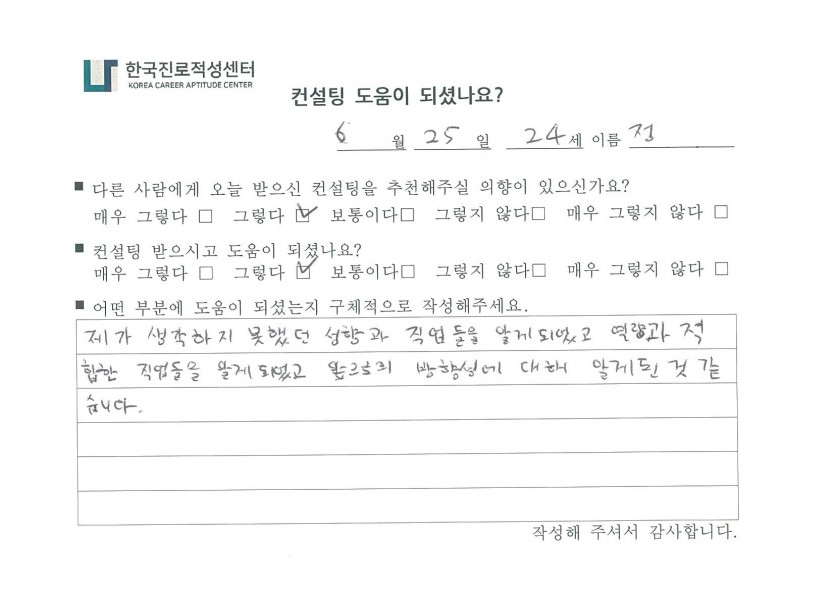 한국진로적성센터
KOREA CAREER APTITUDE CENTER
컨설팅 도움이 되셨나요?
6 월 25 일 24 세 이름 정
■ 다른 사람에게 오늘 받으신 컨설팅을 추천해주실 의향이 있으신가요?
매우 그렇다 □ 그렇다 ☑ 보통이다□ 그렇지 않다□ 매우 그렇지 않다 □
■ 컨설팅 받으시고 도움이 되셨나요?
매우 그렇다 □ 그렇다 ☑ 보통이다□ 그렇지 않다□ 매우 그렇지 않다 □
■ 어떤 부분에 도움이 되셨는지 구체적으로 작성해주세요.
제가 생각하지 못했던 성향과 직업들을 알게되었고 역량과 적
합한 직업들을 알게되었고 앞으로의 방향성에 대해 알게된 것 같
습니다.
작성해 주셔서 감사합니다.